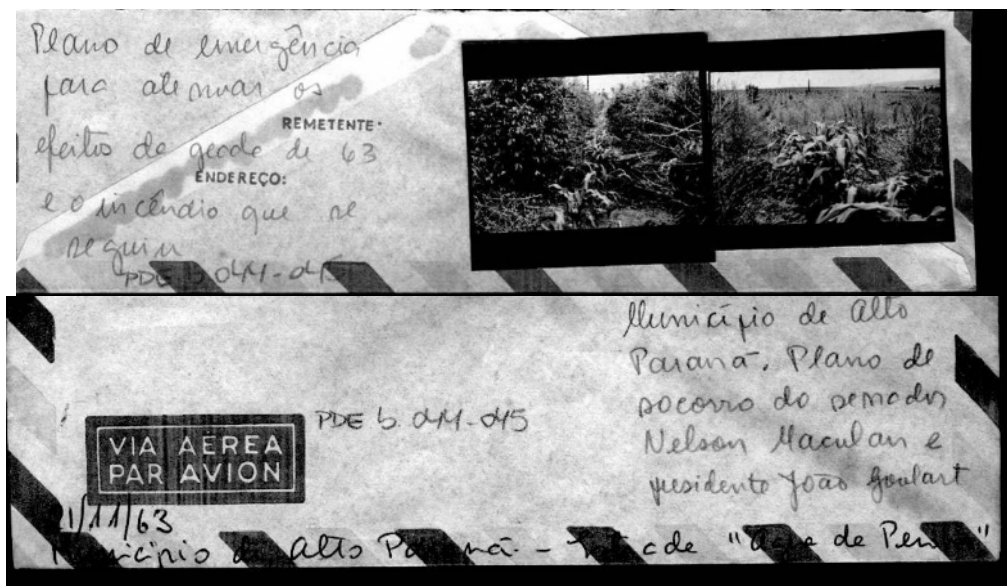 Plano de emergência
para atenuar os
efeitos da geada de 63
e o incêndio que se
seguiu
REMETENTE:
ENDEREÇO:
PDE b 044-045
Município de Alto
Paraná. Plano de
socorro do senador
Nelson Maculan e
presidente João Goulart
PDE b. 044-045
VIA AEREA
PAR AVION
1/11/63
Município de Alto Paraná - de "